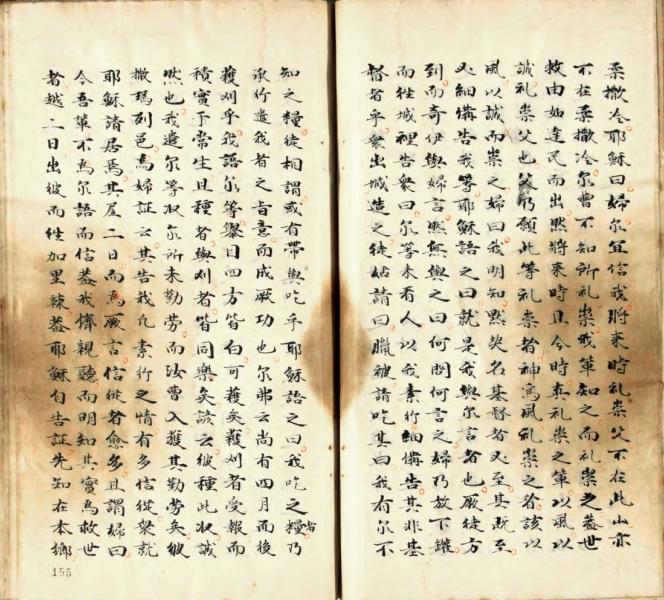 柔撒冷耶穌曰婦尔冝信我將来時礼崇父不在此山亦
不在柔撒冷尔曹不知所礼崇我軰知之而礼崇之蓋世
救由如達民而出然將来時且今時真礼崇之軰以風以
誠礼崇父也父乃願此等礼崇者神寫風礼崇之者該以
風以誠而崇之婦曰我明知黙氏名基督者又至其既至
必細搆告我等耶穌語之曰就是我與尔言者也厥徒方
到而奇伊與婦言然無與之曰何問何言之婦乃放下罐
而徃城裡告衆曰尔等来看人以我素行細搆告其非基
督者乎衆出城造之徒姑請曰臘被請吃其曰我有尔不
知之糧徒相謂或有帶與吃乎耶穌語之曰我吃之糧者乃
承行遣我者之旨意而成厥功也尔弗云尚有四月而後
穫刈乎我語尔等舉目四方皆白可穫矣穫刈者受報而
積實于常生且種者與刈者皆同樂矣諺云彼種此收誠
然也我遣尔等收尔所未勤勞而法曹入穫其勤勞矣彼
撒瑪列邑為婦証云其告我凡素行之情有多信從衆就
耶穌請居焉其居二日而為厥言信從者愈多且謂婦曰
今吾軰不為尔語而信蓋我儕親聽而明知其實為救世
者越二日出彼而徃加里辣蓋耶穌自告証先知在本鄉
155